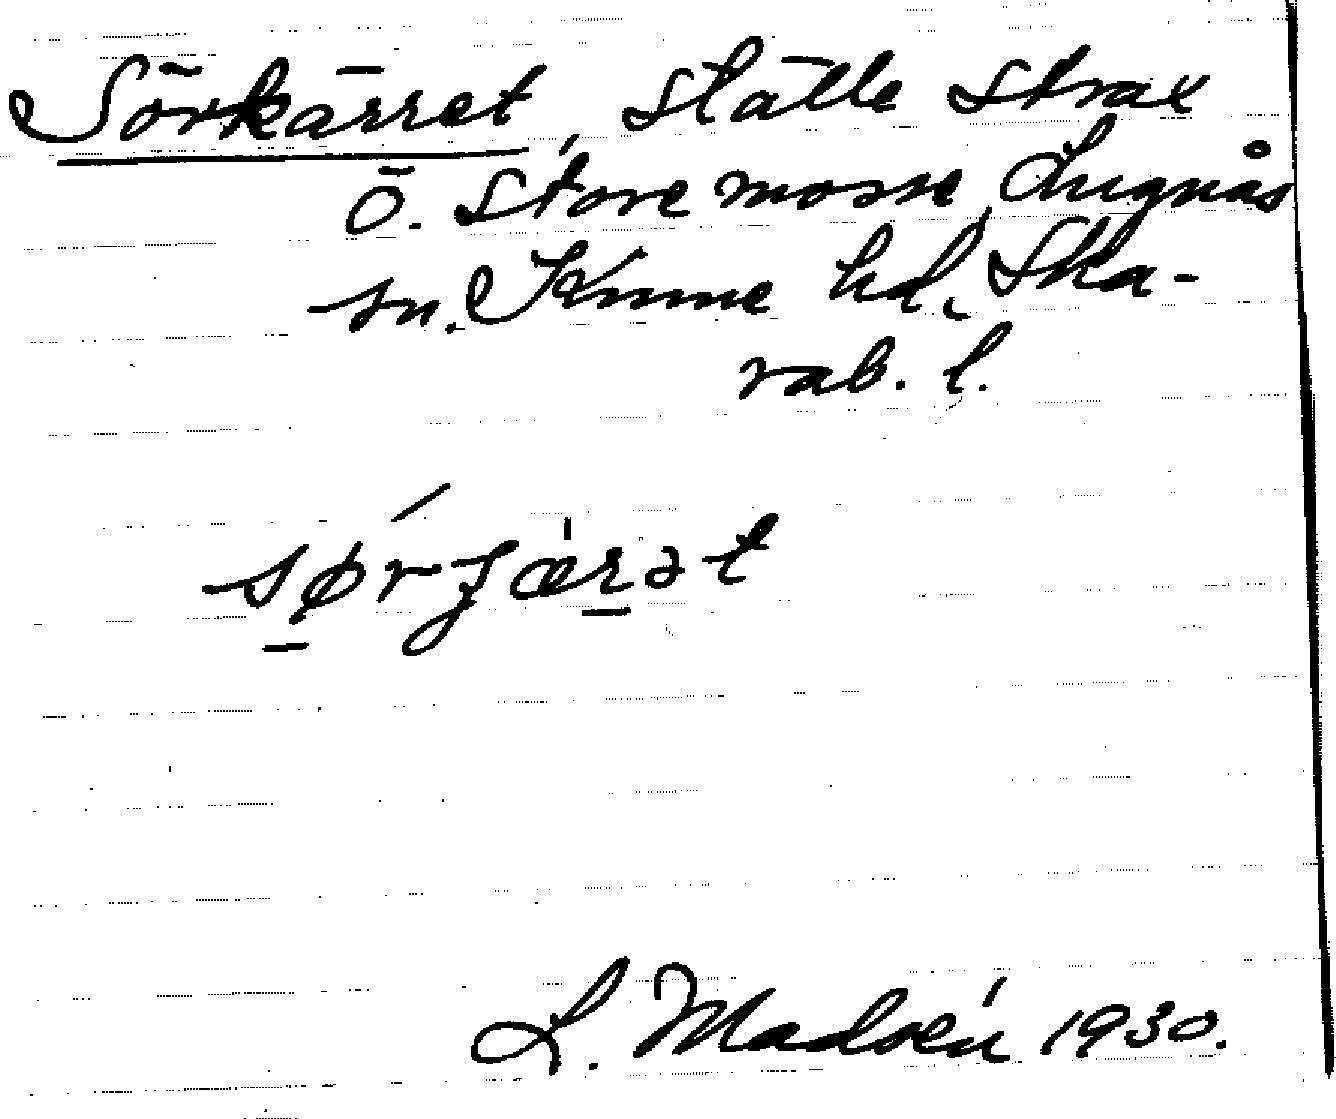 Sörkärret, ställe strax
ö. Store mosse, Lugnås
sn. Kinne hd, Ska-
rab. l.
sørjærət
L. Madsén 1930.